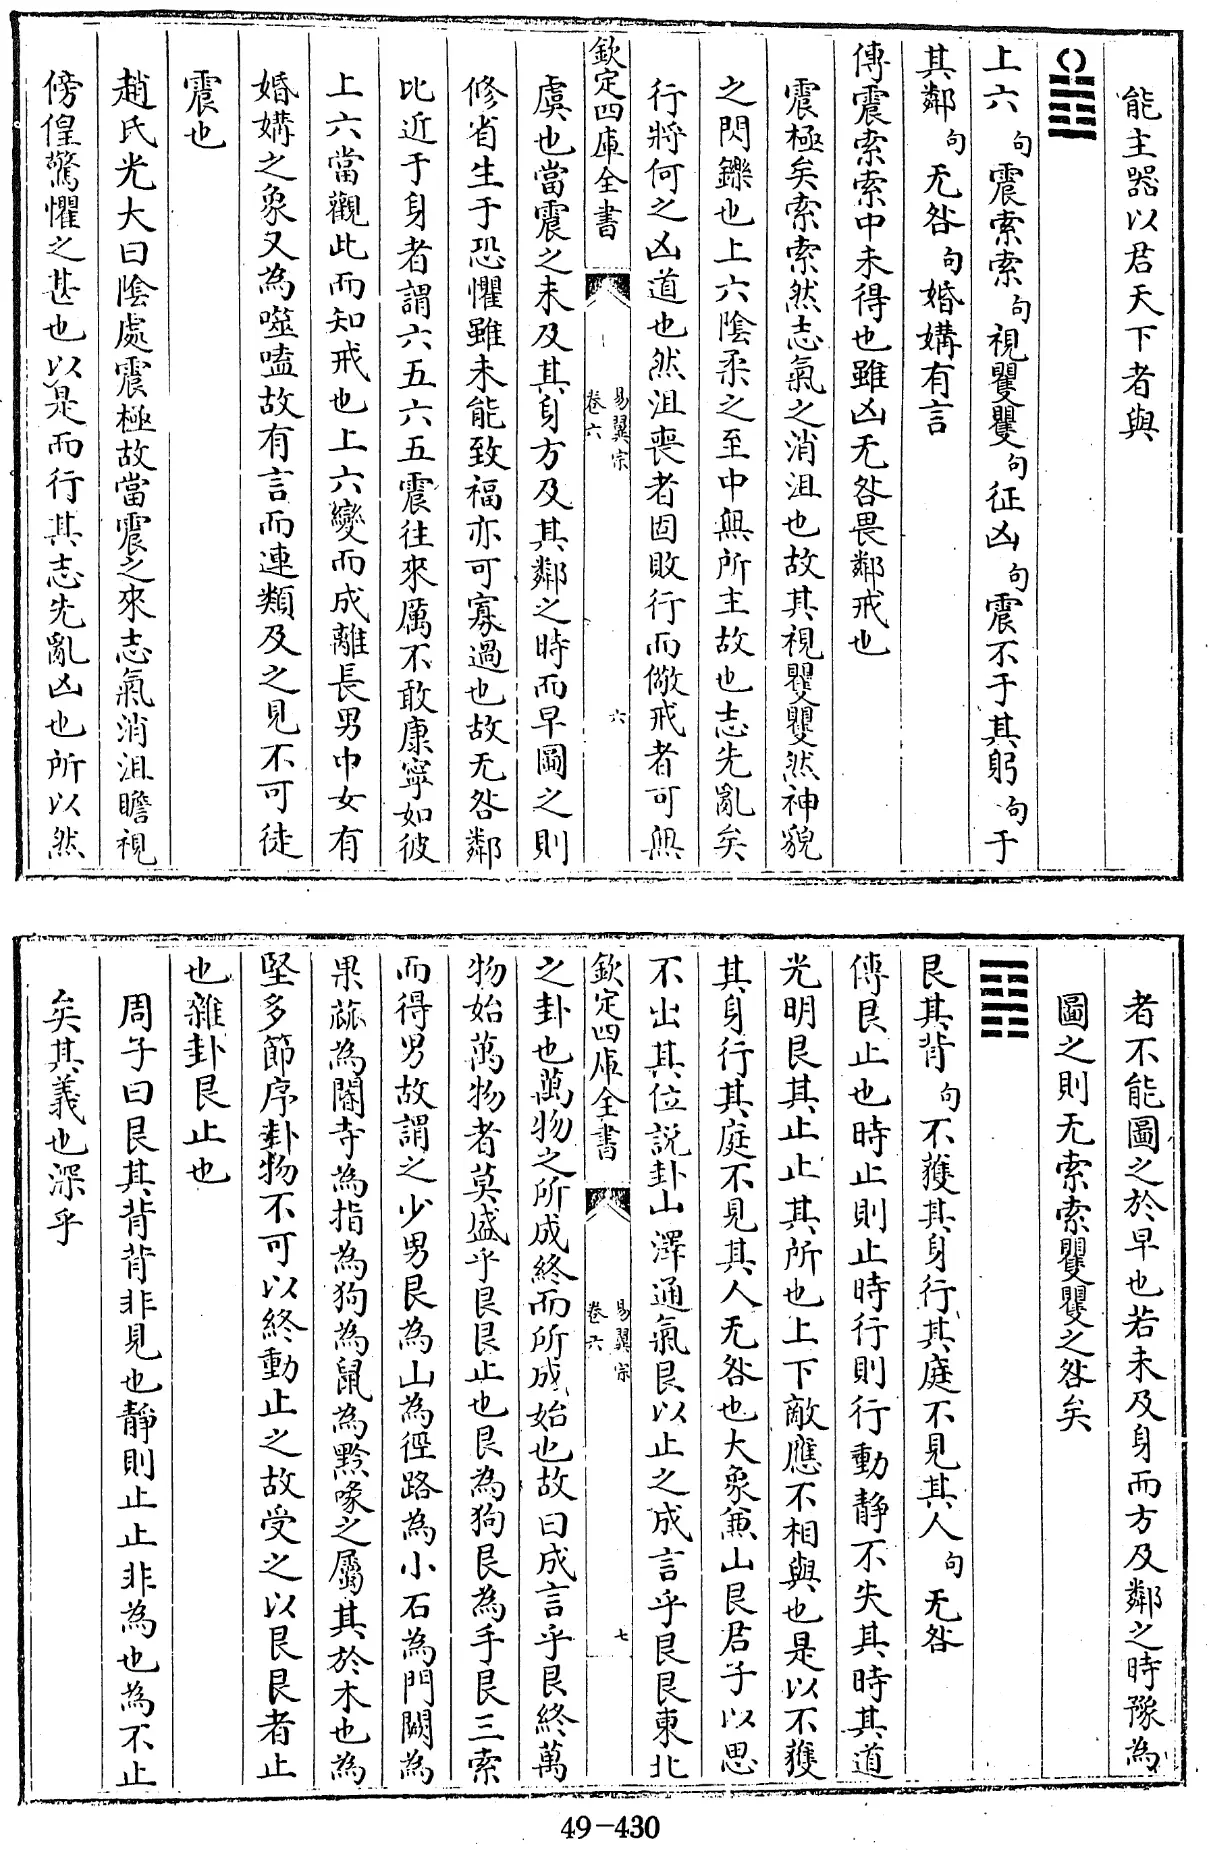 能主器以君天下者與
上六句震索索句視矍矍句征凶句震不于其躬句于
其鄰句无咎句婚媾有言
傳震索索中未得也雖凶无咎畏鄰戒也
震極矣索索然志氣之消沮也故其視矍矍然神貌
之閃鑠也上六陰柔之至中無所主故也志先亂矣
行將何之凶道也然沮喪者固敗行而儆戒者可無
欽定四庫全書
易翼宗
卷六
六
虞也當震之未及其身方及其鄰之時而早圖之則
修省生于恐懼雖未能致福亦可寡過也故无咎鄰
比近于身者謂六五六五震往來厲不敢康寧如彼
上六當觀此而知戒也上六變而成離長男中女有
婚媾之象又為噬嗑故有言而連類及之見不可徒
震也
趙氏光大曰陰處震極故當震之來志氣消沮瞻視
傍偟驚懼之甚也以是而行其志先亂凶也所以然
者不能圖之於早也若未及身而方及鄰之時豫為
圖之則无索索矍矍之咎矣
艮其背句不獲其身行其庭不見其人句无咎
傳艮止也時止則止時行則行動靜不失其時其道
光明艮其止止其所也上下敵應不相與也是以不獲
其身行其庭不見其人无咎也大象兼山艮君子以思
不出其位說卦山澤通氣艮以止之成言乎艮艮東北
欽定四庫全書
易翼宗
卷六
七
之卦也萬物之所成終而所成始也故曰成言乎艮終萬
物始萬物者莫盛乎艮艮止也艮為狗艮為手艮三索
而得男故謂之少男艮為山為徑路為小石為門闕為
果蓏為閽寺為指為狗為鼠為黔喙之屬其於木也為
堅多節序卦物不可以終動止之故受之以艮艮者止
也雜卦艮止也
周子曰艮其背背非見也靜則止止非為也為不止
矣其義也深乎
49-430